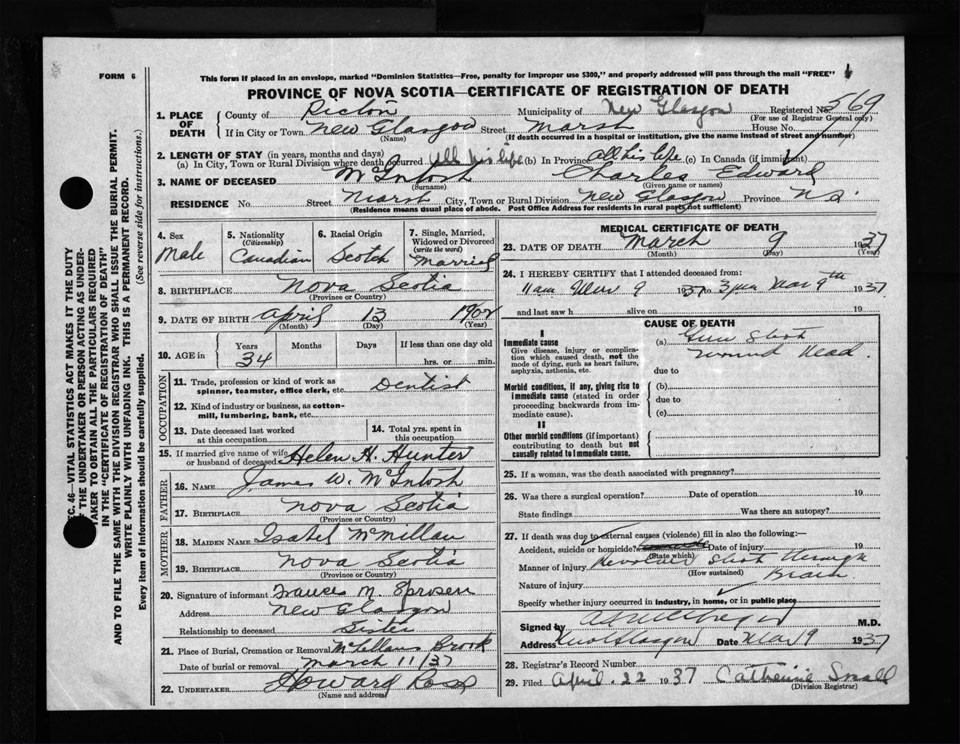 FORM 6
This form if placed in an envelope, marked "Dominion Statistics—Free, penalty for improper use $300," and properly addressed will pass through the mail "FREE"
PROVINCE OF NOVA SCOTIA—CERTIFICATE OF REGISTRATION OF DEATH
1. PLACE OF DEATH
County of Pictou Municipality of New Glasgow Registered No. 569
(For use of Registrar General only)
If in City or Town New Glasgow Street Marsh House No.
(Name) (If death occurred in a hospital or institution, give the name instead of street and number)
2. LENGTH OF STAY (in years, months and days)
(a) In City, Town or Rural Division where death occurred All his life (b) In Province All his life (c) In Canada (if immigrant)
3. NAME OF DECEASED McIntosh Charles Edward
(Surname) (Given name or names)
RESIDENCE No. Street Marsh City, Town or Rural Division New Glasgow Province N.S.
(Residence means usual place of abode. Post Office Address for residents in rural parts not sufficient)
C. 46—VITAL STATISTICS ACT MAKES IT THE DUTY
OF THE UNDERTAKER OR PERSON ACTING AS UNDER-
TAKER TO OBTAIN ALL THE PARTICULARS REQUIRED
IN THE "CERTIFICATE OF REGISTRATION OF DEATH"
AND TO FILE THE SAME WITH THE DIVISION REGISTRAR WHO SHALL ISSUE THE BURIAL PERMIT.
WRITE PLAINLY WITH UNFADING INK. THIS IS A PERMANENT RECORD.
Every item of information should be carefully supplied. (See reverse side for instructions.)
4. Sex
Male
5. Nationality
(Citizenship)
Canadian
6. Racial Origin
Scotch
7. Single, Married,
Widowed or Divorced
(write the word)
Married
8. BIRTHPLACE Nova Scotia
(Province or Country)
9. DATE OF BIRTH April 13 1902
(Month) (Day) (Year)
10. AGE in
Years Months Days If less than one day old
34 hrs. or min.
OCCUPATION
11. Trade, profession or kind of work as
spinner, teamster, office clerk, etc. Dentist
12. Kind of industry or business, as cotton-
mill, lumbering, bank, etc.
13. Date deceased last worked
at this occupation
14. Total yrs. spent in
this occupation
15. If married give name of wife
or husband of deceased Helen H. Hunter
FATHER
16. NAME James W. McIntosh
17. BIRTHPLACE Nova Scotia
(Province or Country)
MOTHER
18. MAIDEN NAME Isabel McMillan
19. BIRTHPLACE Nova Scotia
(Province or Country)
20. Signature of informant Frances M. Sproson
Address New Glasgow
Relationship to deceased Sister
21. Place of Burial, Cremation or Removal McLellans Brook
Date of burial or removal March 11/37
22. UNDERTAKER Howard Ross
(Name and address)
MEDICAL CERTIFICATE OF DEATH
23. DATE OF DEATH March 9 1937
(Month) (Day) (Year)
24. I HEREBY CERTIFY that I attended deceased from:
11 am Mar 9 1937 to 3 pm Mar 9th 1937
and last saw h alive on 19
CAUSE OF DEATH
I
Immediate cause
Give disease, injury or complica-
tion which caused death, not the
mode of dying, such as heart failure,
asphyxia, asthenia, etc.
(a) Gun Shot
wound head.
due to
Morbid conditions, if any, giving rise to
immediate cause (stated in order
proceeding backwards from im-
mediate cause).
(b)
due to
(c)
II
Other morbid conditions (if important)
contributing to death but not
causally related to immediate cause.
25. If a woman, was the death associated with pregnancy?
26. Was there a surgical operation? Date of operation 19
State findings Was there an autopsy?
27. If death was due to external causes (violence) fill in also the following:
Accident, suicide or homicide? Date of injury 19
(State which)
Manner of injury Revolver shot through
(How sustained) Brain
Nature of injury
Specify whether injury occurred in industry, in home, or in public place
Signed by M.D.
Address New Glasgow Date Mar 9 1937
28. Registrar's Record Number
29. Filed April 22 1937 Catherine Small
(Division Registrar)